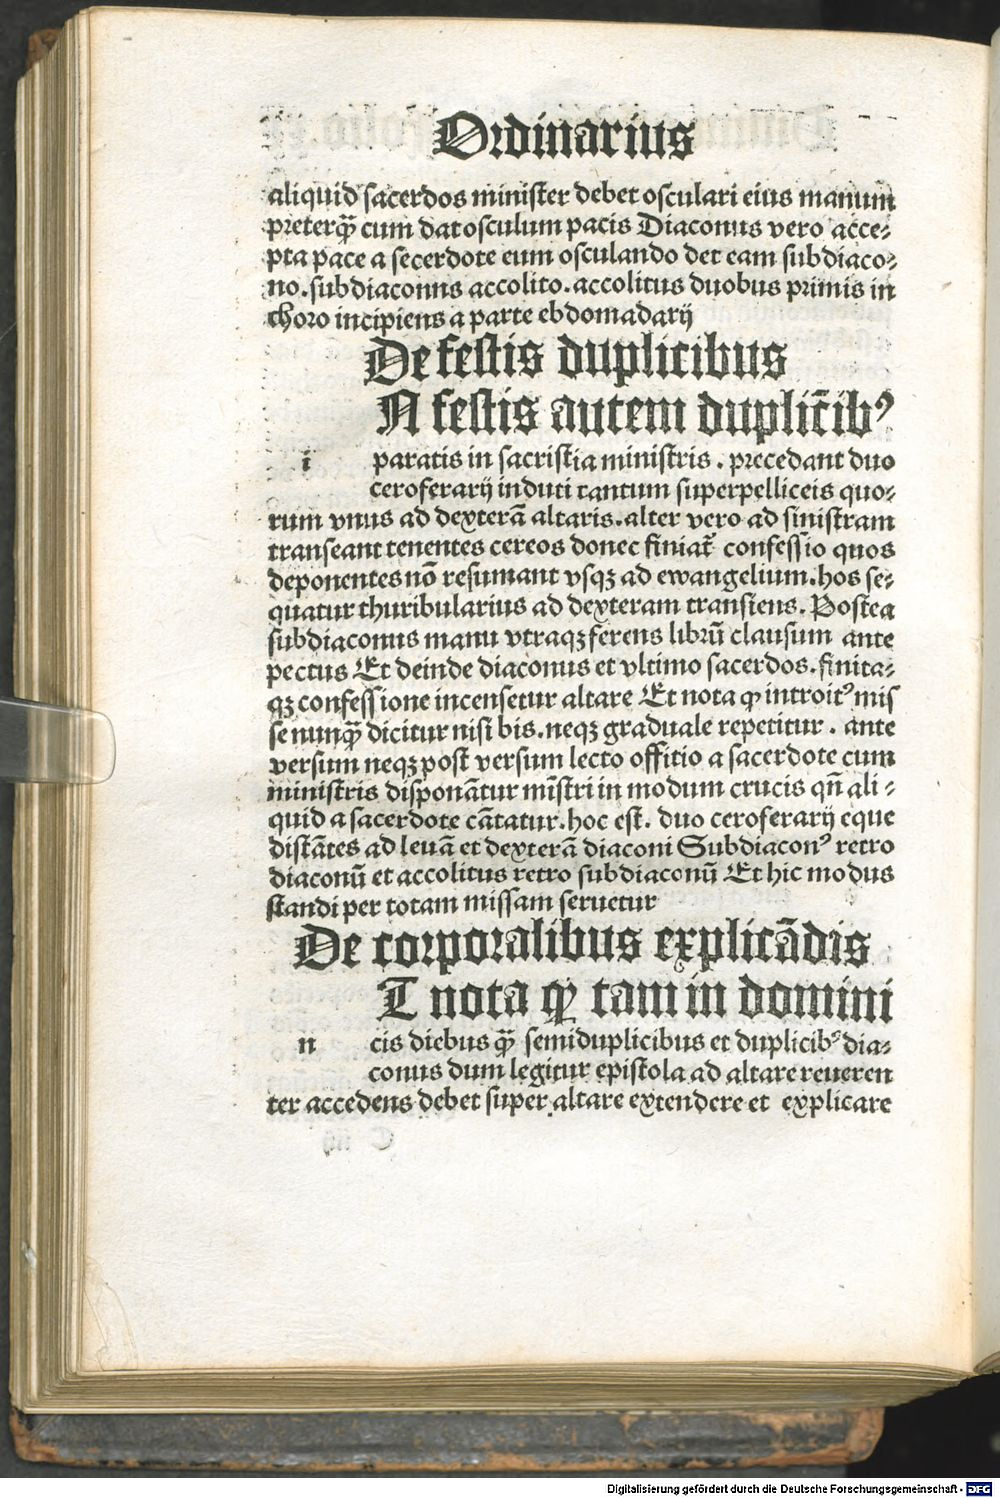 Ordinarius
aliquid sacerdos minister debet osculari eius manum
preterqᷓ cum dat osculum pacis Diaconus vero acce⸗
pta pace a secerdote eum osculando det eam subdiaco⸗
no. subdiaconns accolito. accolitus duobus primis in
choro incipiens a parte ebdomadarij
De festis duplicibus
N festis autem duplic̄ibꝰ
i paratis in sacristia ministris. precedant duo
ceroferarij induti tantum superpelliceis quo⸗
rum vnus ad dexterā altaris. alter vero ad sinistram
transeant tenentes cereos donec finiat᷑ confessio quos
deponentes nō resumant vsqꝫ ad ewangelium. hos se⸗
quatur thuribularius ad dexteram transiens. Postea
subdiaconus manu vtraqꝫ ferens librū clausum ante
pectus Et deinde diaconus et vltimo sacerdos. finita⸗
qꝫ confessione incensetur altare Et nota ꝙ introitꝰ mis
se nunqᷓ dicitur nisi bis. neqꝫ graduale repetitur. ante
versum neqꝫ post versum lecto offitio a sacerdote cum
ministris disponātur mīstri in modum crucis qn̄ ali⸗
quid a sacerdote cātatur. hoc est. duo ceroferarij eque
distātes ad leuā et dexterā diaconi Subdiaconꝰ retro
diaconū et accolitus retro subdiaconū Et hic modus
standi per totam missam seruetur
De corporalibus explicādis
T nota ꝙ tam in domini
n cis diebus qᷓ semiduplicibus et duplicibꝰ dia⸗
conus dum legitur epistola ad altare reueren
ter accedens debet super altare extendere et explicare
Digitalisierung gefördert durch die Deutsche Forschungsgemeinschaft - DFG